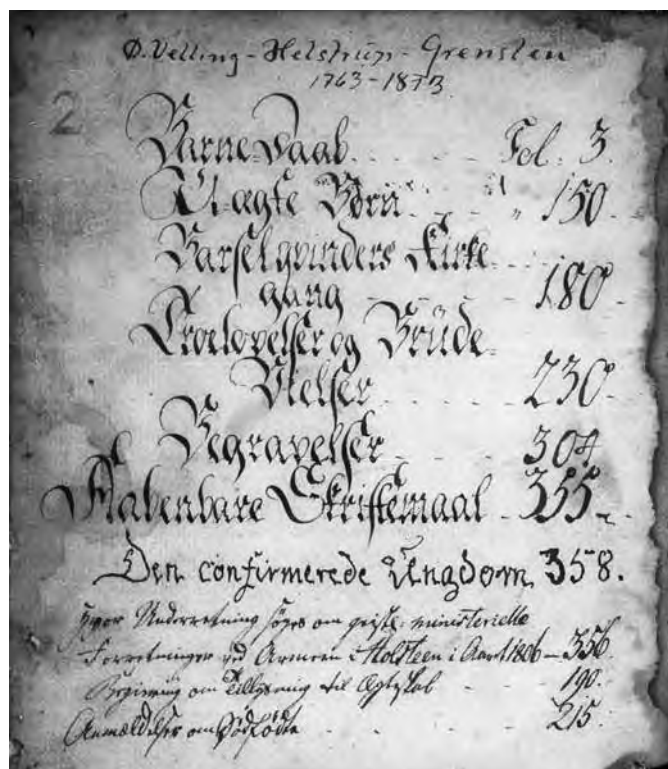 Ø. Velling - Helstrup - Grensten
1763 - 1873
2
Barne-Daab Fol. 3.
U-ægte Börn " 150.
Barselqvinders Kirke
gang 180.
Troelovelser og Brude-
Vielser 230.
Begravelser 304
Aabenbare Skriftemaal 355
Den confirmerede Ungdom 358.
hvor Underretning søges om geistl: ministerielle
Forretninger ved Armeen i Holsteen i Aaret 1806 - 356.
om Tillysning til Ægteskab 190.
Anmældelser om Dödfödte 215.